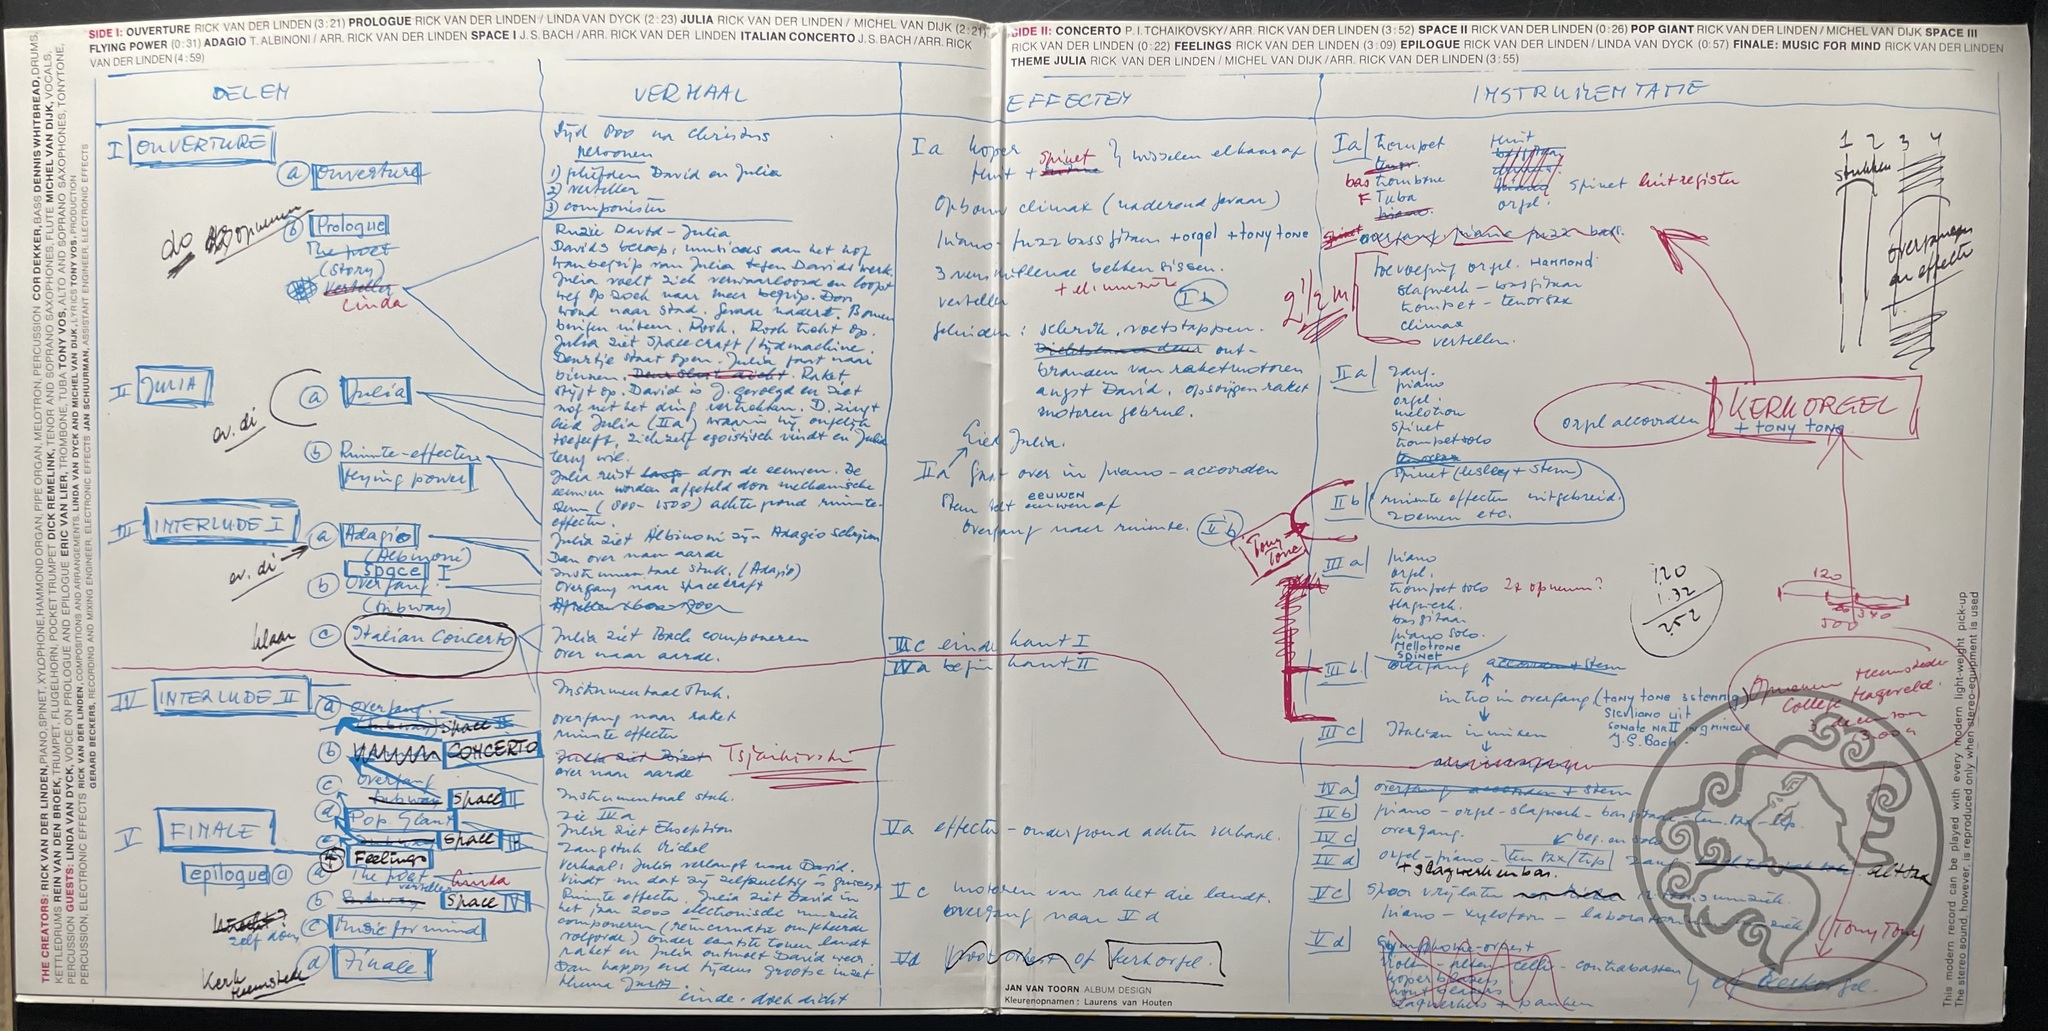 SIDE I: OUVERTURE RICK VAN DER LINDEN (3:21) PROLOGUE RICK VAN DER LINDEN / LINDA VAN DYCK (2:23) JULIA RICK VAN DER LINDEN / MICHEL VAN DIJK (2:21)
FLYING POWER (0:31) ADAGIO T. ALBINONI / ARR. RICK VAN DER LINDEN SPACE I J.S. BACH / ARR. RICK VAN DER LINDEN ITALIAN CONCERTO J.S. BACH / ARR. RICK
VAN DER LINDEN (4:59)
SIDE II: CONCERTO P. I. TCHAIKOVSKY/ARR. RICK VAN DER LINDEN (3:52) SPACE II RICK VAN DER LINDEN (0:26) POP GIANT RICK VAN DER LINDEN / MICHEL VAN DIJK SPACE III
RICK VAN DER LINDEN (0:22) FEELINGS RICK VAN DER LINDEN (3:09) EPILOGUE RICK VAN DER LINDEN / LINDA VAN DYCK (0:57) FINALE: MUSIC FOR MIND RICK VAN DER LINDEN
THEME JULIA RICK VAN DER LINDEN / MICHEL VAN DIJK / ARR. RICK VAN DER LINDEN (3:55)
THE CREATORS: RICK VAN DER LINDEN, PIANO, SPINET, XYLOPHONE, HAMMOND ORGAN, PIPE ORGAN, MELOTRON, PERCUSSION COR DEKKER, BASS DENNIS WHITBREAD, DRUMS,
KETTLEDRUMS REIN VAN DEN BROEK, TRUMPET, FLUGELHORN, POCKET TRUMPET DICK REMELINK, TENOR AND SOPRANO SAXOPHONES, FLUTE MICHEL VAN DIJK, VOCALS,
PERCUSSION GUESTS: LINDA VAN DYCK, VOICE ON PROLOGUE AND EPILOGUE ERIC VAN LIER, TROMBONE, TUBA TONY VOS, ALTO AND SOPRANO SAXOPHONES, TONYTONE,
PERCUSSION, ELECTRONIC EFFECTS RICK VAN DER LINDEN, COMPOSITIONS AND ARRANGEMENTS LINDA VAN DYCK AND MICHEL VAN DIJK, LYRICS TONY VOS, PRODUCTION
GERARD BECKERS, RECORDING AND MIXING ENGINEER, ELECTRONIC EFFECTS JAN SCHUURMAN, ASSISTANT ENGINEER, ELECTRONIC EFFECTS
DELEN
VERHAAL
EFFECTEN
INSTRUMENTATIE
I OUVERTURE
a ouverture
do opnemen
b Prologue
The poet
(story)
Verteller
Linda
II JULIA
a Julia
ev. di
b Ruimte-effecten
flying power
III INTERLUDE I
a Adagio
(Albinoni)
ev. di
Space I
b Overgang
(subway)
klaar
c Italian Concerto
IV INTERLUDE II
a overgang
Space II
b CONCERTO
c overgang
subway Space II
d Pop Giant
e Space III
f Feelings
V FINALE
epilogue a The poet
verteller Linda
b Subway Space IV
zelf doen
c Music for mind
Kerk
Heemstede
d Finale
Tijd 800 na Christus
personen
1) geliefden David en Julia
2) verteller
3) componisten
Ruzie David - Julia
Davids beroep, musicus aan het hof
Wanbegrip van Julia tegen Davids werk.
Julia voelt zich verwaarloosd en loopt
weg op zoek naar meer begrip. Door
woud naar stad. Gevaar nadert. Bomen
buigen uiteen. Rook. Rook trekt op.
Julia ziet Spacecraft / tijdmachine.
Deurtje staat open. Julia gaat naar
binnen. Raket
stijgt op. David is J. gevolgd en ziet
nog net het ding vertrekken. D. zingt
lied Julia (IIa) waarin hij ongelijk
toegeeft, zichzelf egoistisch vindt en Julia
terug wil.
Julia reist door de eeuwen. De
eeuwen worden afgeteld door mechanische
stem (800 - 1500) achtergrond ruimte-
effecten.
Julia ziet Albinoni zijn Adagio schrijven
Dan over naar aarde
Instrumentaal stuk. (Adagio)
overgang naar spacecraft
Julia ziet Bach componeren
over naar aarde.
Instrumentaal stuk.
overgang naar raket
ruimte effecten
Tsjaikovski
over naar aarde
Instrumentaal stuk.
zie IIIa
Julia ziet Ekseption
Zangstuk Michel
Verhaal: Julia verlangt naar David.
Vindt nu dat zij zelfzuchtig is geweest
Ruimte effecten. Julia ziet David in
het jaar 2000 electronische muziek
componeren (reincarnatie omgekeerde
volgorde) onder laatste tonen landt
raket en Julia ontmoet David weer
Dan happy end tijdens grootse inzet
thema Julia.
einde - doek dicht
Ia koper
hout + spinet } wisselen elkaar af
Opbouw climax (naderend gevaar)
piano - fuzz bass gitaar + orgel + tony tone
3 verschillende bekken sissen.
verteller Ib
geluiden: schrik, voetstappen.
ont-
branden van raketmotoren
angst David, opstijgen raket
motoren gebrul.
Lied Julia.
IIa gaat over in piano-accoorden
Stem telt eeuwen af
overgang naar ruimte. IIb
IIIc einde kant I
IVa begin kant II
Va effecten - ondergrond achter verhaal.
Vc motoren van raket die landt.
overgang naar Vd
Vd of Kerkorgel.
JAN VAN TOORN ALBUM DESIGN
Kleurenopnamen: Laurens van Houten
Ia trompet
bas trombone
F Tuba
orgel.
spinet luitregister
overgang piano fuzz bass.
2 1/2 m
toevoeging orgel. HAMMOND
slagwerk - basgitaar
trompet - tenorsax
climax
verteller.
1 2 3 4
stukken
overgangen
en effecten
IIa zang.
piano
orgel.
melotron
spinet
trompet solo
orgel accoorden
KERKORGEL
+ TONY TONE
spinet (lesley + stem)
IIb ruimte effecten uitgebreid.
zoemen etc.
Tony
Tone
IIIa piano
orgel.
trompet solo 2x opnemen?
slagwerk.
basgitaar
piano solo.
Mellotrone
spinet
120
1.32
252
120
IIIb. overgang accoorden + stem
intro in overgang (TONY TONE 3 stemmig)
SICILIANO UIT
SONATE NR II in g mineur
J.S. Bach.
IIIc Italian inmixen
Opnemen Heemstede
College Hageveld.
3 december
IVa overgang accoorden + stem
IVb piano - orgel - slagwerk - basgitaar - ten. sax - trp.
IVc overgang.
beg. en solo
IVd orgel - piano - ten sax / trp zang
+ slagwerk en bas.
altsax
Vc Spoor vrijlaten
piano - xylofoon
(Tony Tone)
Vd symphonie-orkest
violen - alten - celli - contrabassen
koperblazers
houtblazers
slagwerkers + pauken
of Kerkorgel.
This modern record can be played with every modern light-weight pick-up
The stereo sound, however, is reproduced only when stereo-equipment is used